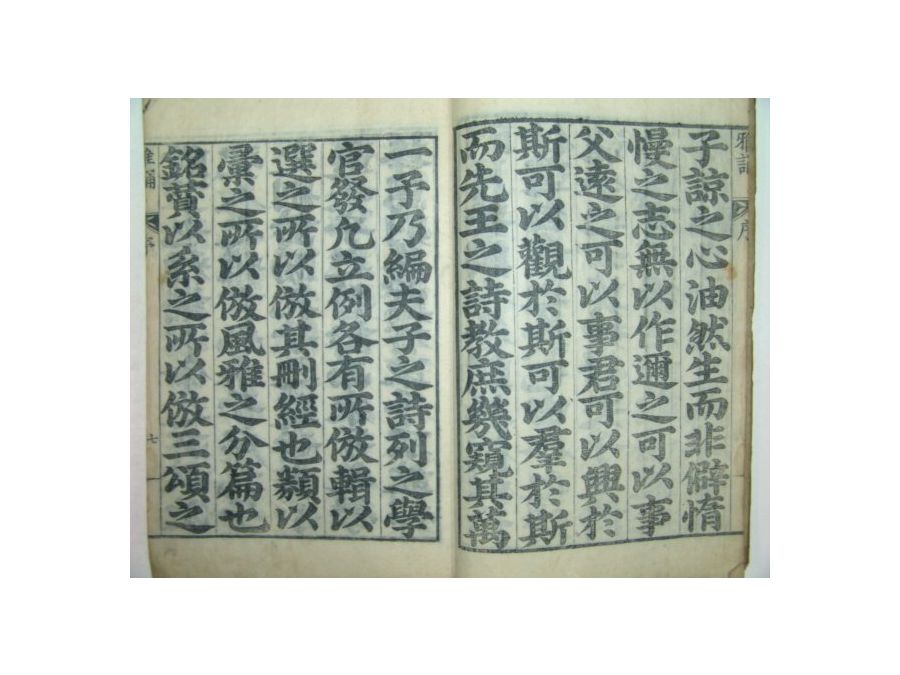 雅誦
序
子諒之心油然生而非僻惰
慢之志無以作邇之可以事
父遠之可以事君可以興於
斯可以觀於斯可以羣於斯
而先王之詩教庶幾窺其萬
一子乃編夫子之詩列之學
官發凡立例各有所倣輯以
選之所以倣其刪經也類以
彙之所以倣風雅之分篇也
銘贊以系之所以倣三頌之
雅誦
序
七